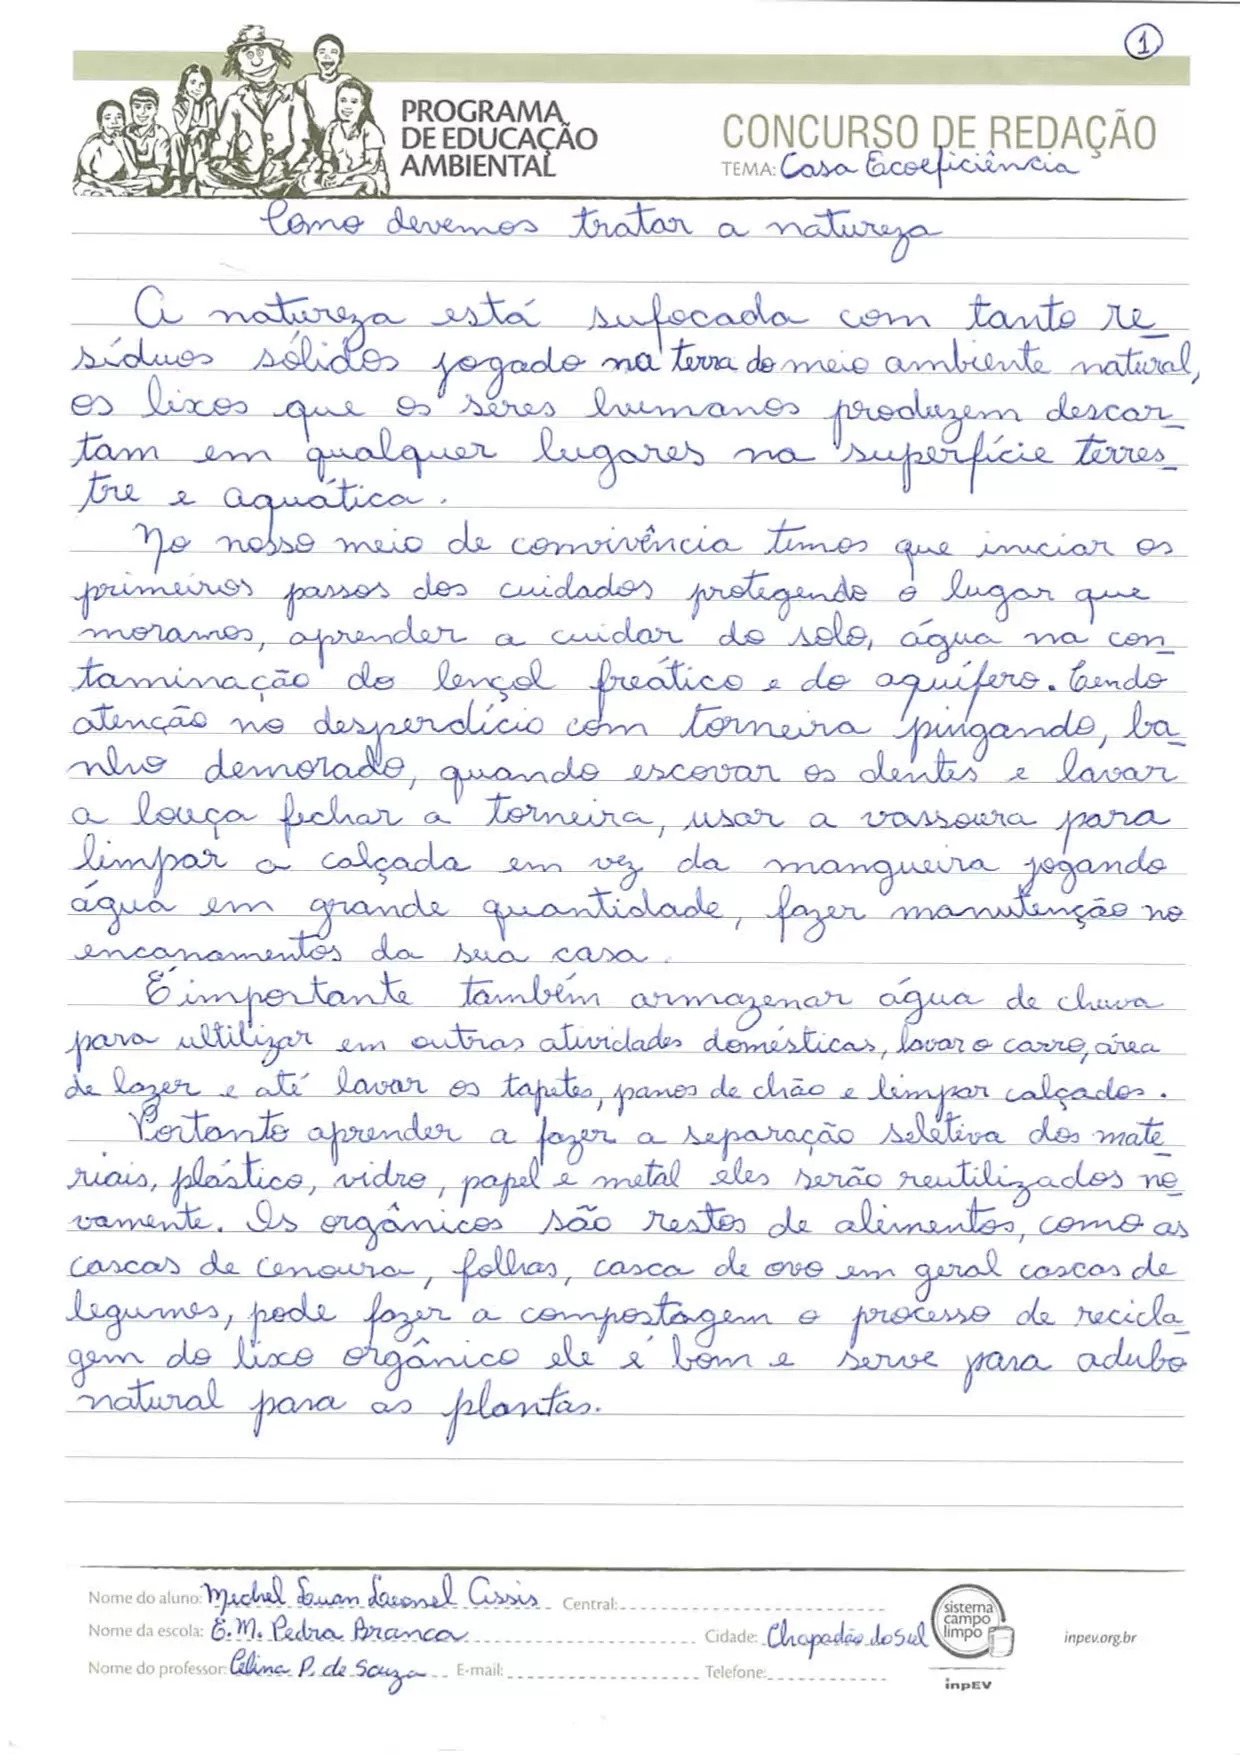 1
PROGRAMA
DE EDUCAÇÃO
AMBIENTAL
CONCURSO DE REDAÇÃO
TEMA: Casa Ecoeficiência
Como devemos tratar a natureza
A natureza está sufocada com tanto re_
síduos sólidos jogado na terra do meio ambiente natural,
os lixos que os seres humanos produzem descar_
tam em qualquer lugares na superfície terres_
tre e aquática.
No nosso meio de convivência temos que iniciar os
primeiros passos dos cuidados protegendo o lugar que
moramos, aprender a cuidar do solo, água na con_
taminação do lençol freático e do aquífero. Tendo
atenção no desperdício com torneira pingando, ba_
nho demorado, quando escovar os dentes e lavar
a louça fechar a torneira, usar a vassoura para
limpar a calçada em vez da mangueira jogando
água em grande quantidade, fazer manutenção no
encanamentos da sua casa.
É importante também armazenar água de chuva
para ultilizar em outras atividades domésticas, lavar o carro, área
de lazer e até lavar os tapetes, panos de chão e limpar calçados.
Portanto aprender a fazer a separação seletiva dos mate_
riais, plástico, vidro, papel e metal eles serão reutilizados no_
vamente. Os orgânicos são restos de alimentos, como as
cascas de cenoura, folhas, casca de ovo em geral cascas de
legumes, pode fazer a compostagem o processo de recicla_
gem do lixo orgânico ele é bom e serve para adubo
natural para as plantas.
Nome do aluno: Michel Luan Leonel Assis Central:
Nome da escola: E.M. Pedra Branca Cidade: Chapadão do Sul
Nome do professor: Célina P. de Souza E-mail: Telefone:
sistema
campo
limpo
inpEV
inpev.org.br